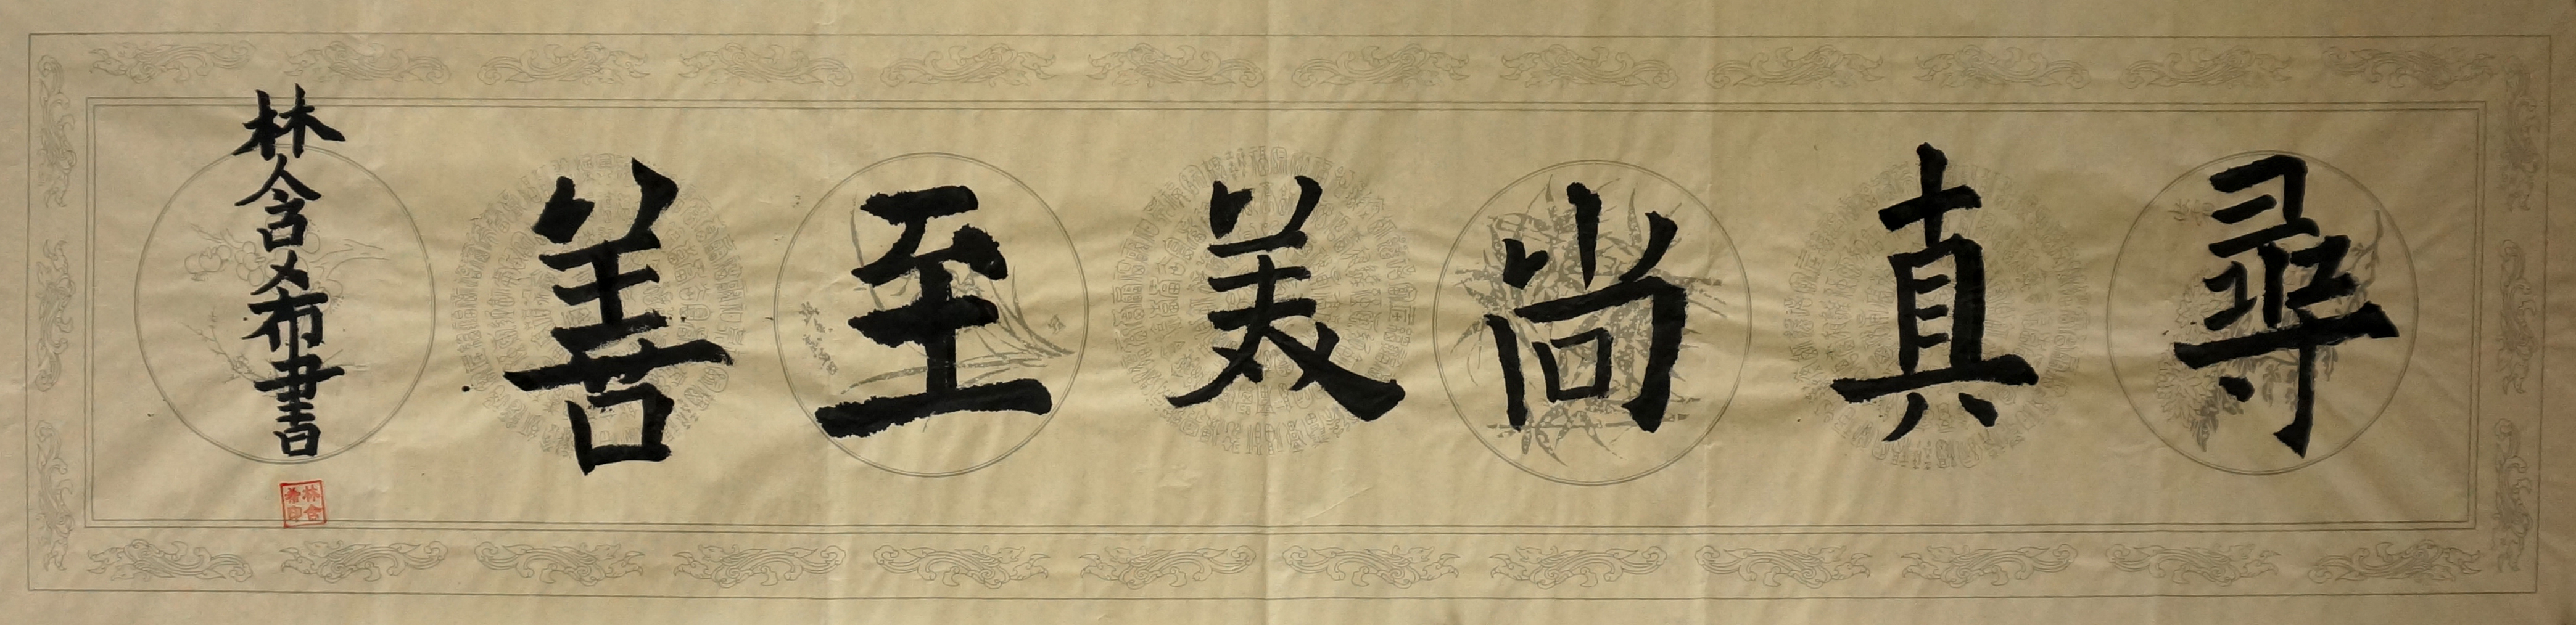 尋真尚美至善
林含希書
林含希印